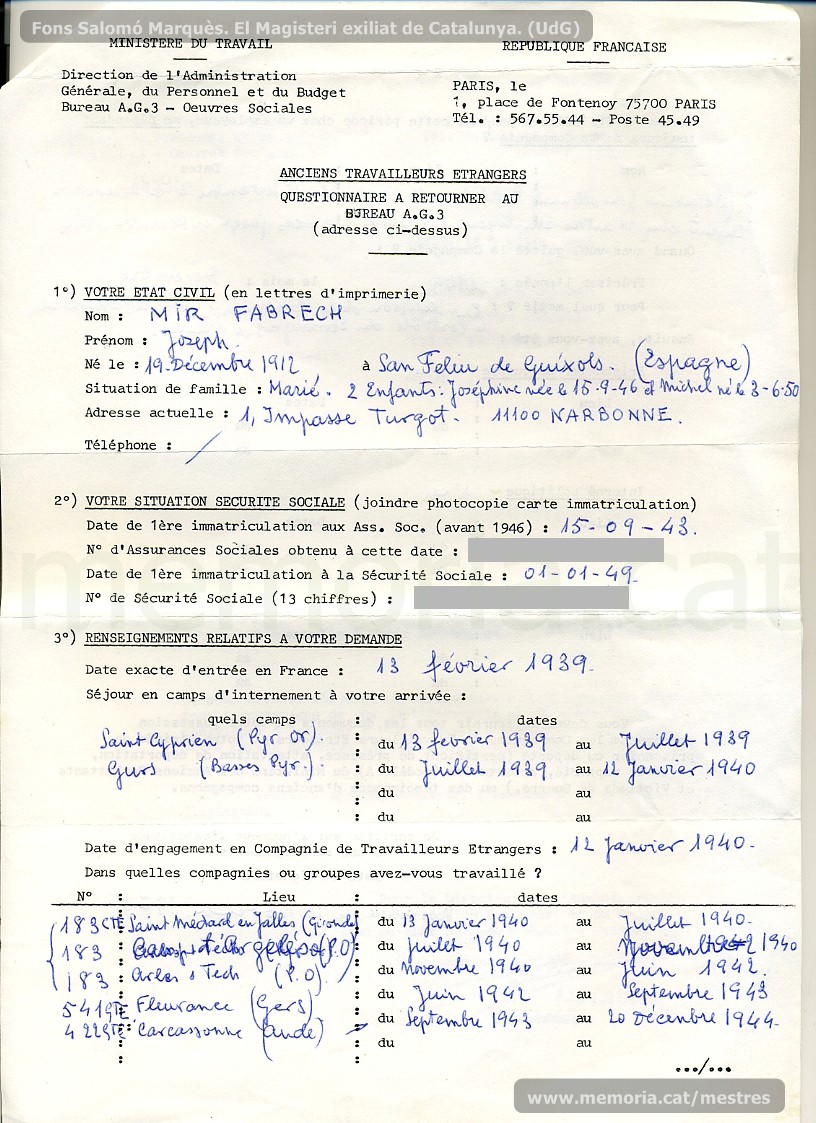 Fons Salomó Marquès. El Magisteri exiliat de Catalunya. (UdG)
MINISTERE DU TRAVAIL
REPUBLIQUE FRANCAISE
Direction de l'Administration
Générale, du Personnel et du Budget
Bureau A.G.3 - Oeuvres Sociales
PARIS, le
1, place de Fontenoy 75700 PARIS
Tél. : 567.55.44 - Poste 45.49
ANCIENS TRAVAILLEURS ETRANGERS
QUESTIONNAIRE A RETOURNER AU
BUREAU A.G.3
(adresse ci-dessus)
1°) VOTRE ETAT CIVIL (en lettres d'imprimerie)
Nom : MIR FABRECH
Prénom : Joseph.
Né le : 19. Décembre 1912 à San Feliu de Guíxols. (Espagne)
Situation de famille : Marié. 2 Enfants: Joséphine née le 15-9-46 et Michel né le 3-6-50
Adresse actuelle : 1, Impasse Turgot. 11100 NARBONNE.
Téléphone : /
2°) VOTRE SITUATION SECURITE SOCIALE (joindre photocopie carte immatriculation)
Date de 1ère immatriculation aux Ass. Soc. (avant 1946) : 15-09-43.
N° d'Assurances Sociales obtenu à cette date :
Date de 1ère immatriculation à la Sécurité Sociale : 01-01-49.
N° de Sécurité Sociale (13 chiffres) :
memoria.cat
3°) RENSEIGNEMENTS RELATIFS A VOTRE DEMANDE
Date exacte d'entrée en France : 13 février 1939.
Séjour en camps d'internement à votre arrivée :
quels camps : dates
Saint Cyprien (Pyr Or). : du 13 février 1939 au Juillet 1939
Gurs (Basses Pyr.) : du Juillet 1939 au 12 Janvier 1940
: du au
: du au
Date d'engagement en Compagnie de Travailleurs Etrangers : 12 Janvier 1940.
Dans quelles compagnies ou groupes avez-vous travaillé ?
N° : Lieu : dates
183 CTE : Saint Médard en Jalles (Gironde) : du 13 Janvier 1940 au Juillet 1940.
183 : (P.O) : du Juillet 1940 au Novembre 1940
183 : Arles s Tech (P.O) : du Novembre 1940 au Juin 1942.
541 GTE : Fleurance (Gers) : du Juin 1942 au Septembre 1943
422 GTE : Carcassonne (Aude) : du Septembre 1943 au 20 Décembre 1944.
: : du au
.../...
www.memoria.cat/mestres